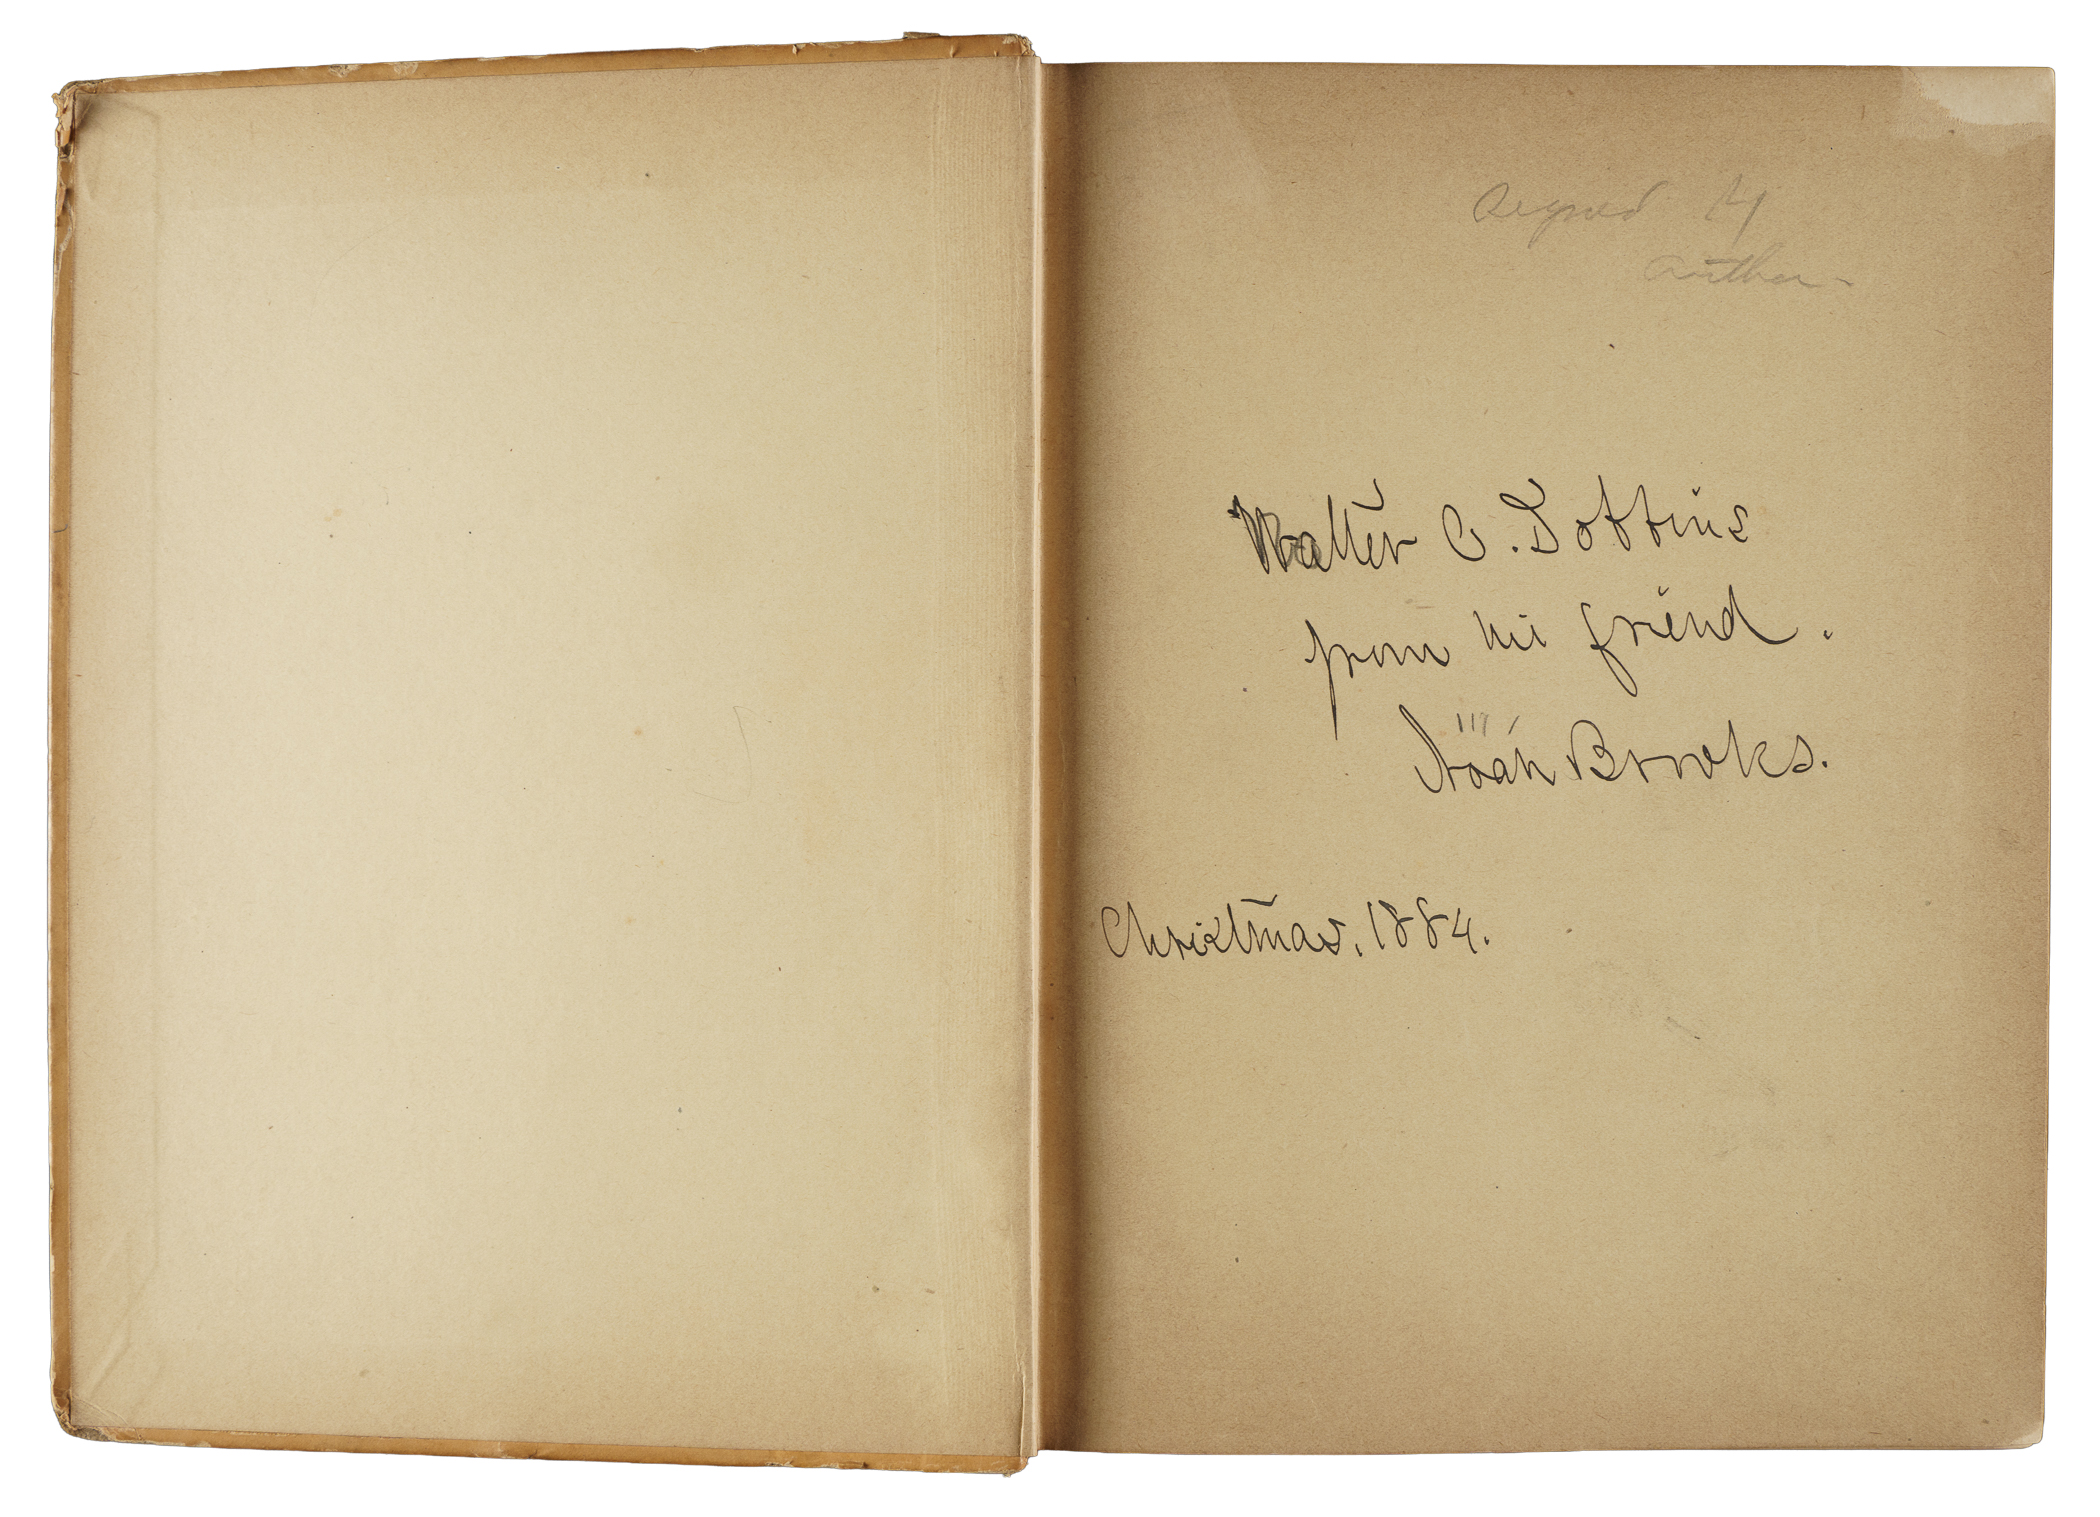 signed by
author
Walter C. Dobbins
from his friend.
Noah Brooks.
Christmas, 1884.